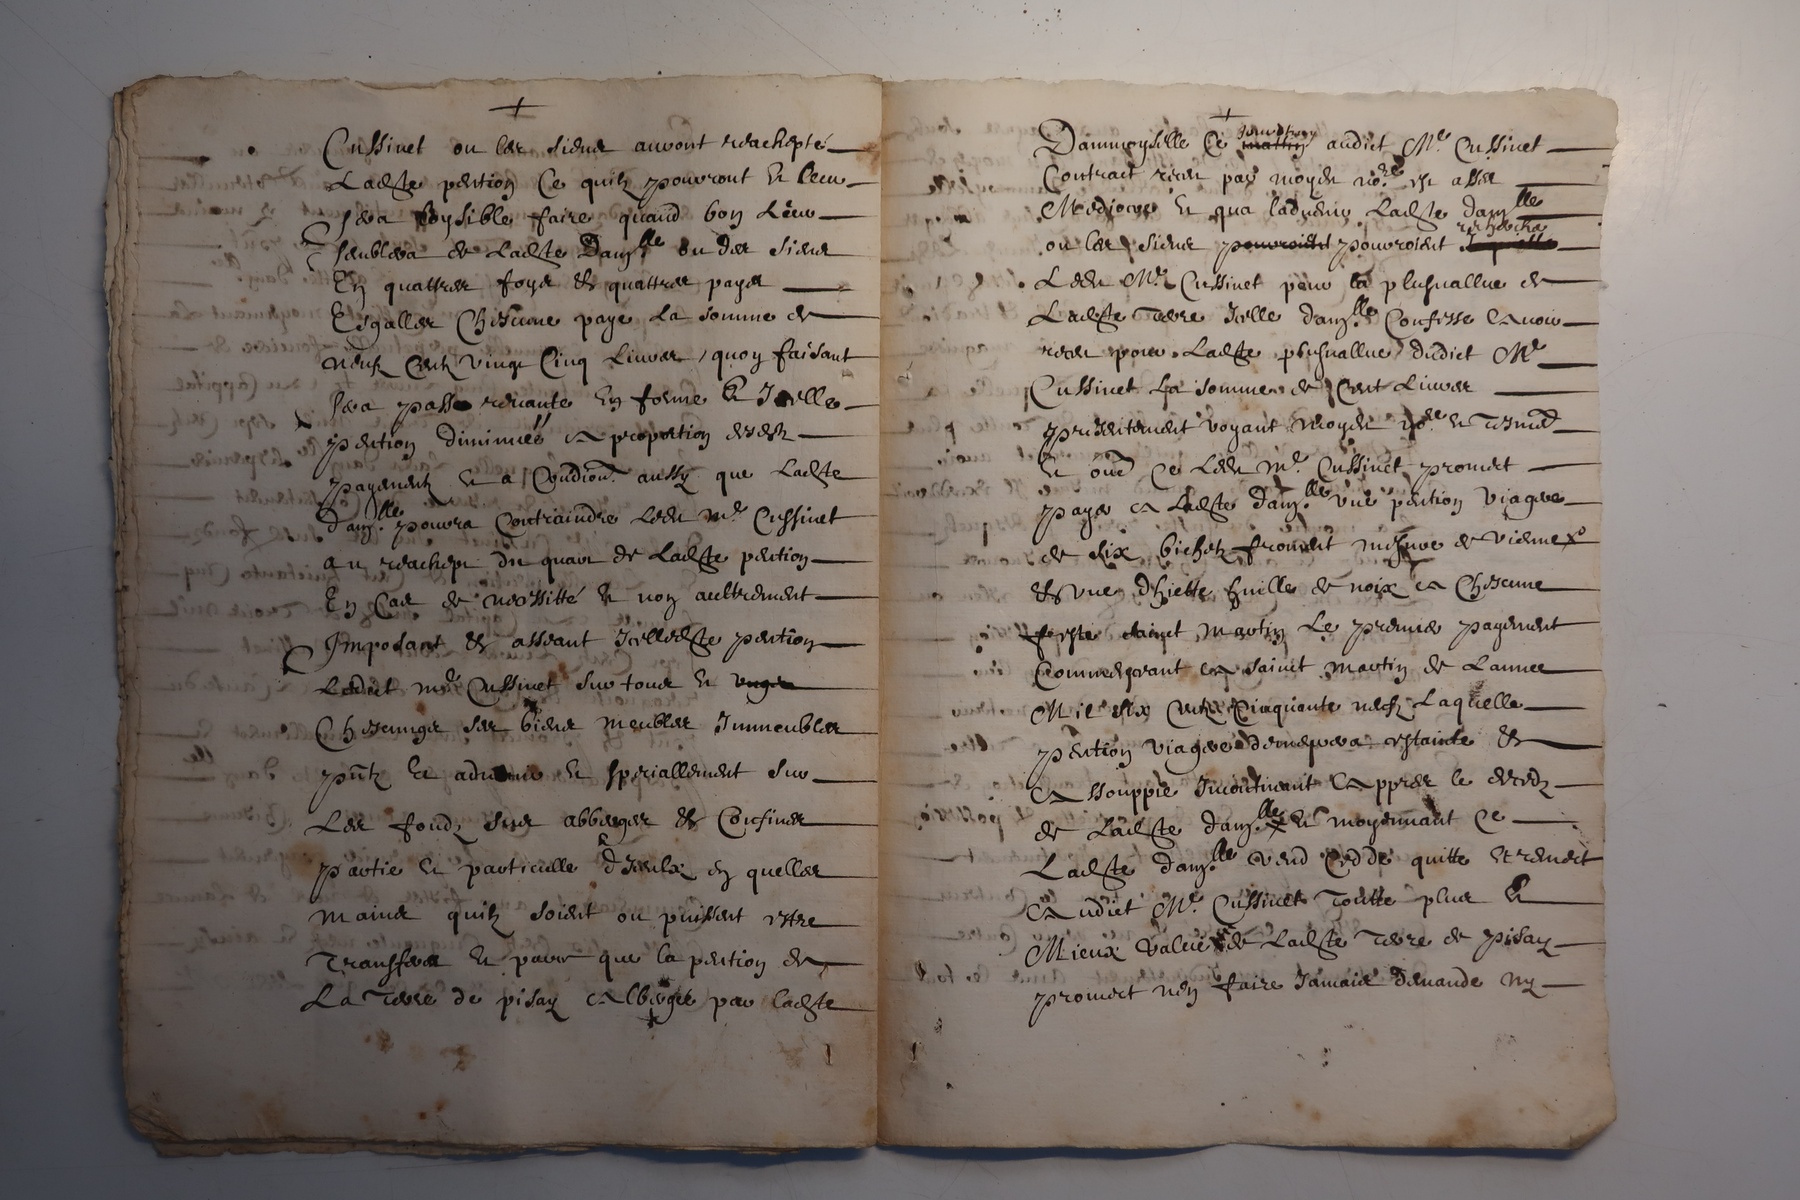 Cussinet ou les siens auront reachepté
Ladte pention Ce quilz pourront et leur
sera loysible faire quand bon Leur
semblera de Ladte Damlle ou des siens
En quattres foys et quattres payes
Esgalles Chescune paye La somme de
neufz centz vingt Cinq Liures, quoy faisant
sera passé quittante En forme Et Icelle
pention diminuéé a proportion desdz
payementz et a Condion aussy que Ladte
damlle pourra Contraindre Ledt Mr Cussinet
au reachept du quart de Ladte pention
En Cas de necessitté et non aultrement
Imposant et asseant Icelledte pention
Ledict Mr Cussinet sur tous et
Chescungs ses biens meubles Immeubles
pntz et aduenir et speciallement sur
Les fondz sus abberges et Confines
partie et particulle dIceulx en quelles
mains quilz soient ou puissent estre
Transferes et par que la pention de
La Terre de pisay Alberge par ladte
Dammoyselle Ce audict Mr Cussinet
Contract receu par moyd no.re est asses
Mediocre et qua laduenir Ladte damlle
ou les siens pourroient pourroient rechercher
Ledt Mr Cussinet pour la plusuallue de
Ladte Terre Icelle damlle Confesse Auoir
receu pour Ladte plusuallue dudict Mr
Cussinet La somme de Cent Liures
presentement voyant moyd no.re et tesmd
et oue Ce Ledt Mr Cussinet promect
payer A Ladte damlle vne pention viagere
de six bichetz froment mesure de vienne
et vne huille de noix A Chescune
feste sainct Martin Le premier payement
Commencant A sainct Martin de Lannee
Mil six centz Cinquante neufz Laquelle
pention viagere demeurera estainte et
Assouppie Incontinant Appres le decedz
de Ladte damlle et moyennant Ce
Ladte damlle vend cedde quitte et remect
Audict Mr Cussinet Toutte plus Et
Mieux value de Ladte Terre de pisay
promect nen faire Iamais demande ny